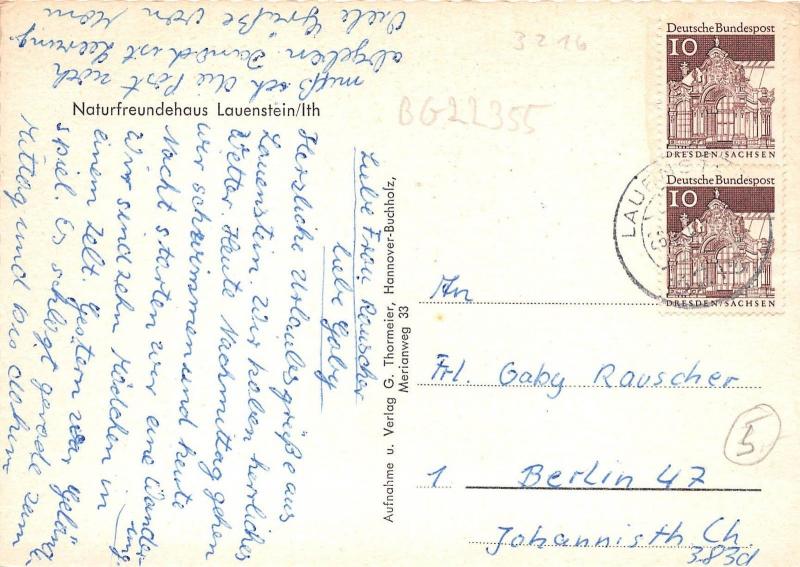 Naturfreundehaus Lauenstein/Ith
Liebe Frau Rauscher
liebe Gaby
Herzliche Urlaubsgrüße aus
Lauenstein. Wir haben herrliches
Wetter. Heute Nachmittag gehen
wir schwimmen und heute
Nacht starten wir eine Wander-
ung.
Wir sind zehn Mädchen in
einem Zelt. Gestern war Gelände-
spiel. Es schlägt gerade zum
Mittag und bis dahin
muß ich die Post noch
abgeben. Danach ist Leerung.
Viele Grüße von
Aufnahme u. Verlag G. Thormeier, Hannover-Buchholz,
Merianweg 33
3216
BG22355
Deutsche Bundespost
10
DRESDEN/SACHSEN
Deutsche Bundespost
10
DRESDEN/SACHSEN
An
Frl. Gaby Rauscher
1 Berlin 47
Johannisth. Ch.
383d
5